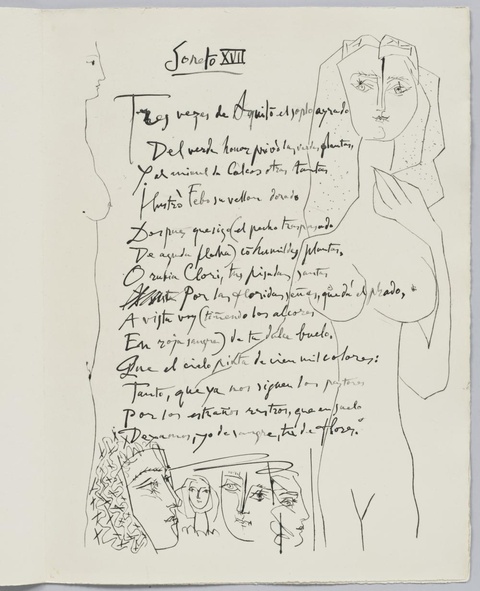 Soneto XVII
Tres vezes de Aquilō el soplo ayrado
Del verde honor privò las verdes plantas,
Y al animal de Colcos otras tantas
Ilustrò Febo su vellon dorado
Despues que sigo (el pecho traspassado
De aguda flecha) cō humildes plantas,
O rubia Clori, tus pisadas santas
Por las floridas señas, que da el prado.
A vista voy (tiñendo los alcores
En roja sangre) de tu dulce buelo,
Que el cielo pinta de cien mil colores:
Tanto, que ya nos siguen los pastores
Por los estraños rastros, que en suelo
Dexamos, yo de sangre, tu de flores."